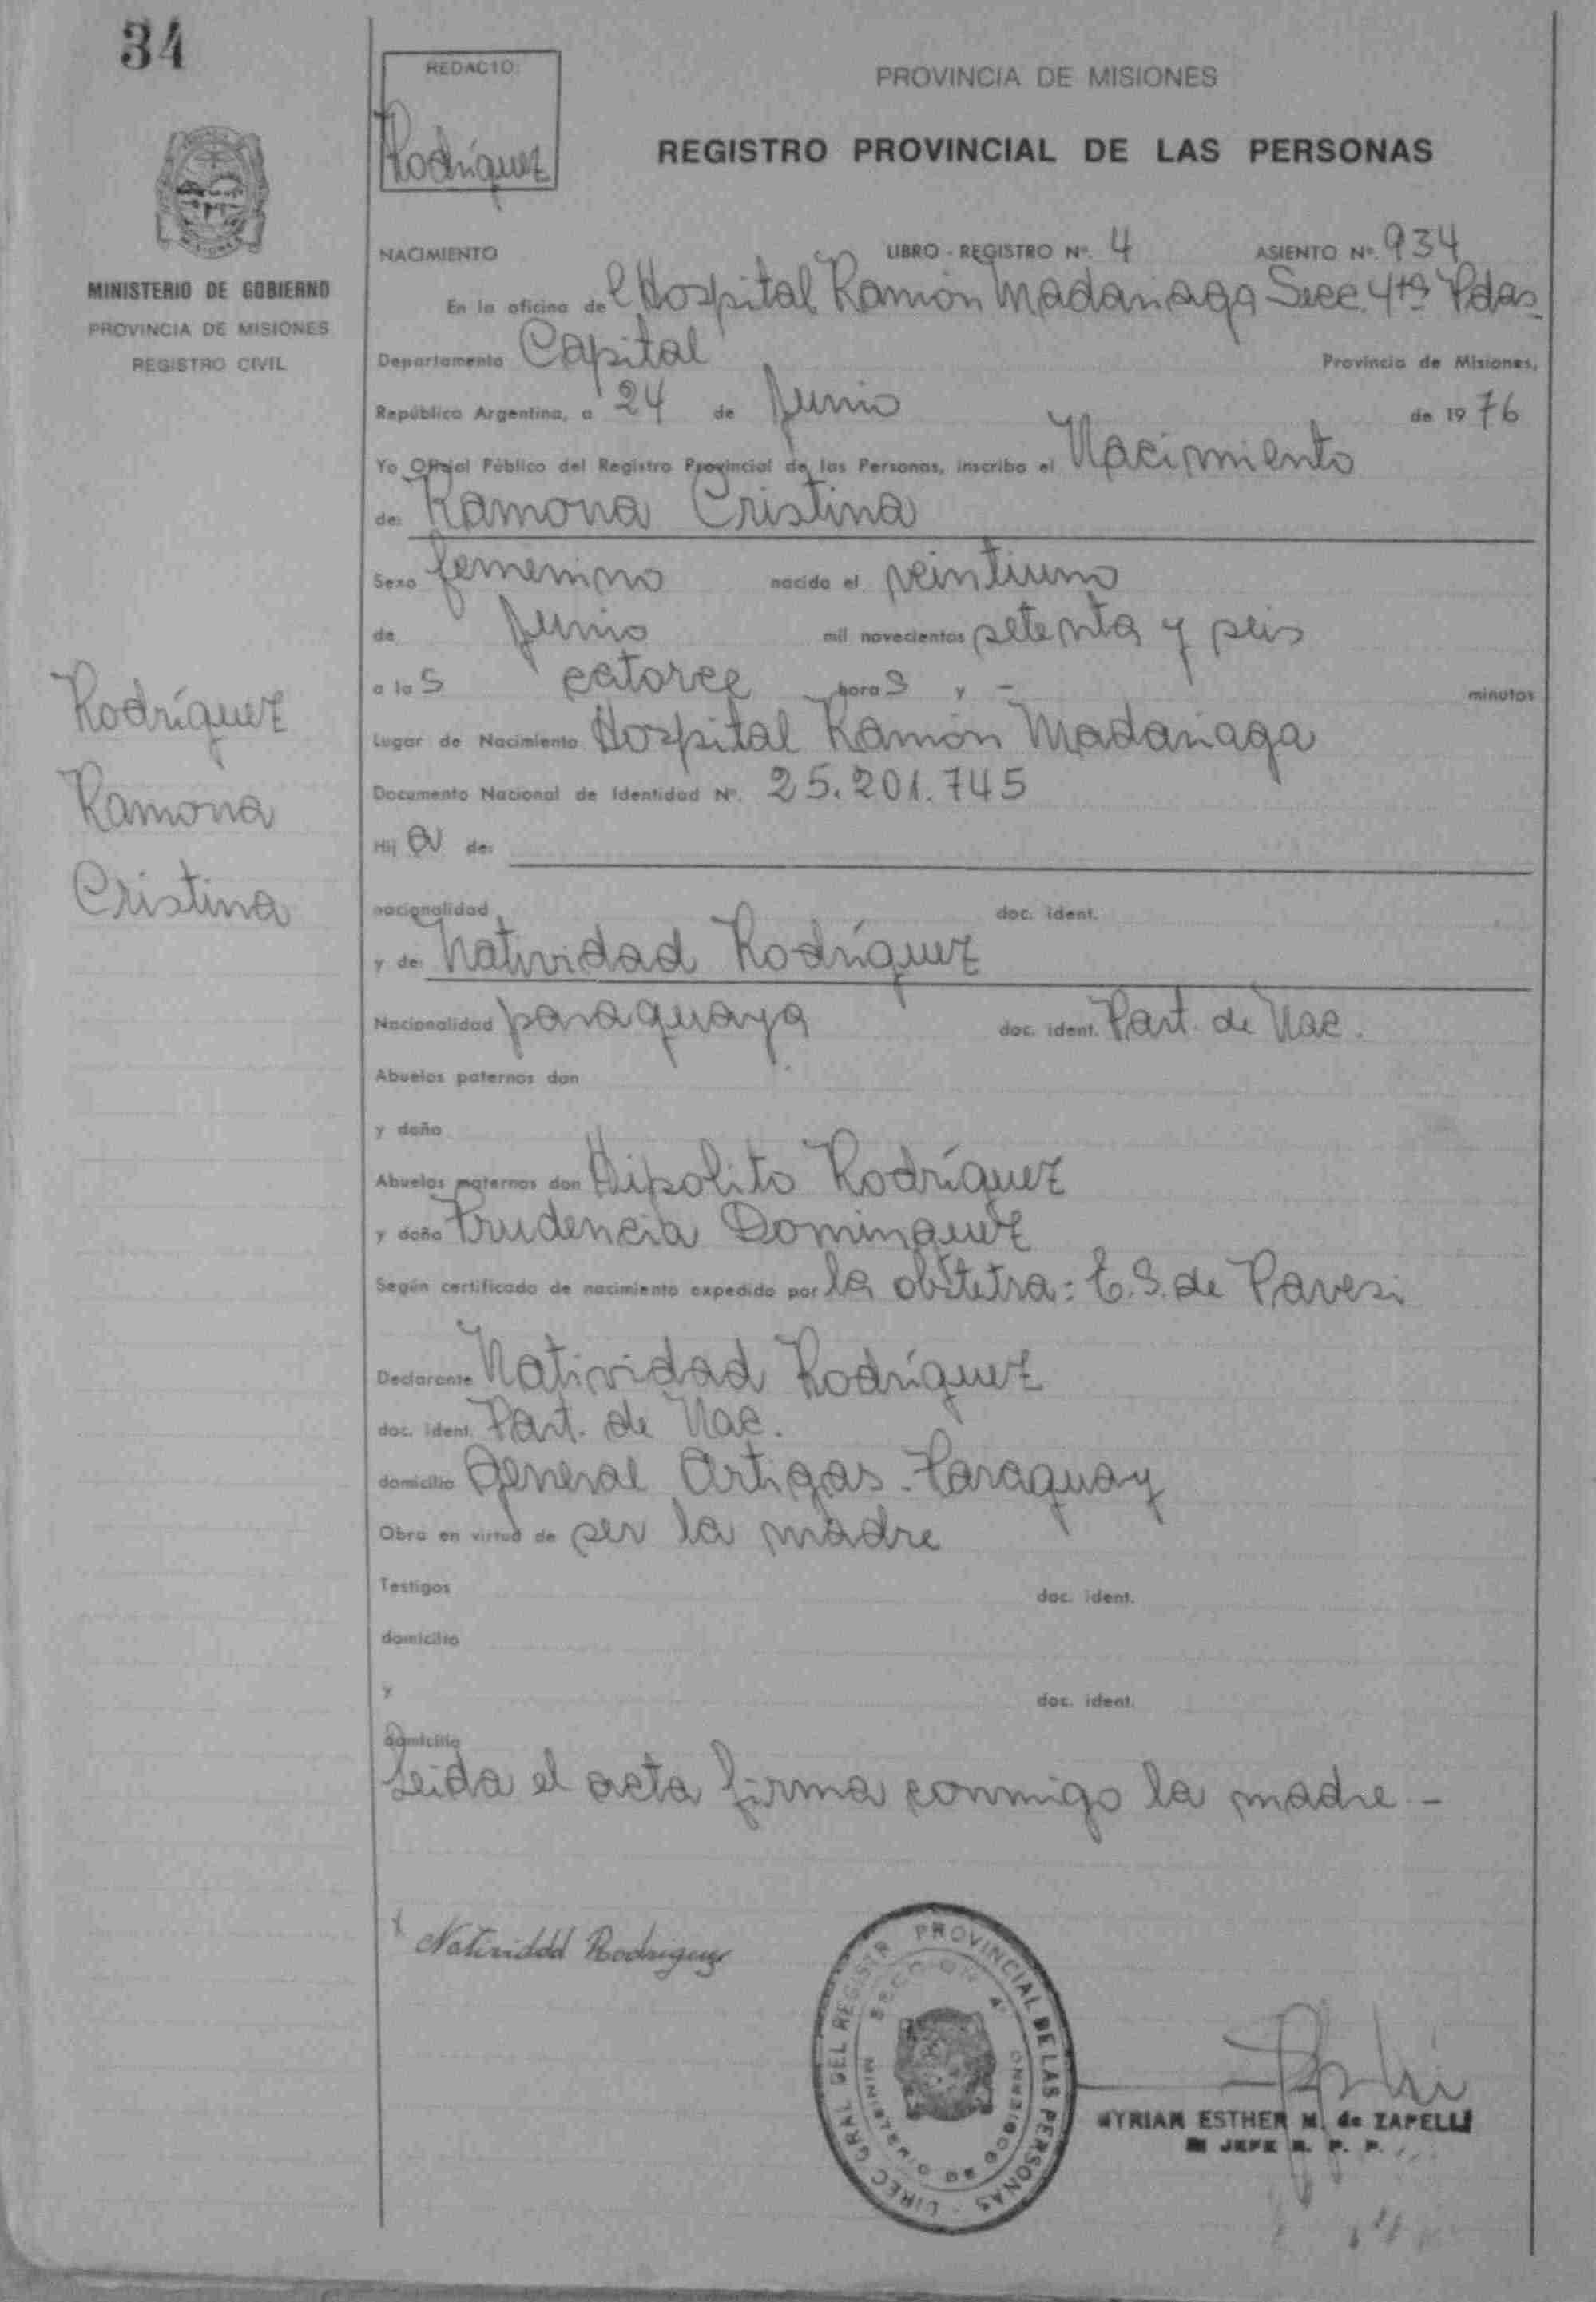 34
REDACTO:
Rodríguez
PROVINCIA DE MISIONES
REGISTRO PROVINCIAL DE LAS PERSONAS
MINISTERIO DE GOBIERNO
PROVINCIA DE MISIONES
REGISTRO CIVIL
NACIMIENTO LIBRO - REGISTRO Nº. 4 ASIENTO Nº. 934
En la oficina del Hospital Ramón Madariaga Secc. 4ta Pdas.
Departamento Capital Provincia de Misiones,
República Argentina, a 24 de Junio de 1976
Yo Oficial Público del Registro Provincial de las Personas, inscribo el Nacimiento
de: Ramona Cristina
Sexo femenino nacido el veintiuno
de Junio mil novecientos setenta y seis
a las catorce horas y - minutos
Lugar de Nacimiento Hospital Ramón Madariaga
Documento Nacional de Identidad Nº. 25.201.745
Hija de:
nacionalidad doc. ident.
y de: Natividad Rodríguez
Nacionalidad paraguaya doc. ident. Part. de Nac.
Abuelos paternos don
y doña
Abuelos maternos don Hipolito Rodríguez
y doña Prudencia Dominguez
Según certificado de nacimiento expedido por la obstetra: E.S. de Pavesi
Declarante Natividad Rodríguez
doc. ident. Part. de Nac.
domicilio General Artigas - Paraguay
Obra en virtud de ser la madre
Testigos doc. ident.
domicilio
y doc. ident.
domicilio
Leida el acta firma conmigo la madre -
Rodríguez
Ramona
Cristina
x Natividad Rodriguez
DIREC GRAL DEL REGISTR PROVINCIAL DE LAS PERSONAS
SECCION 4ª
MINISTERIO DE GOBIERNO
MYRIAN ESTHER M. de ZAPELLI
JEFE R. P. P.